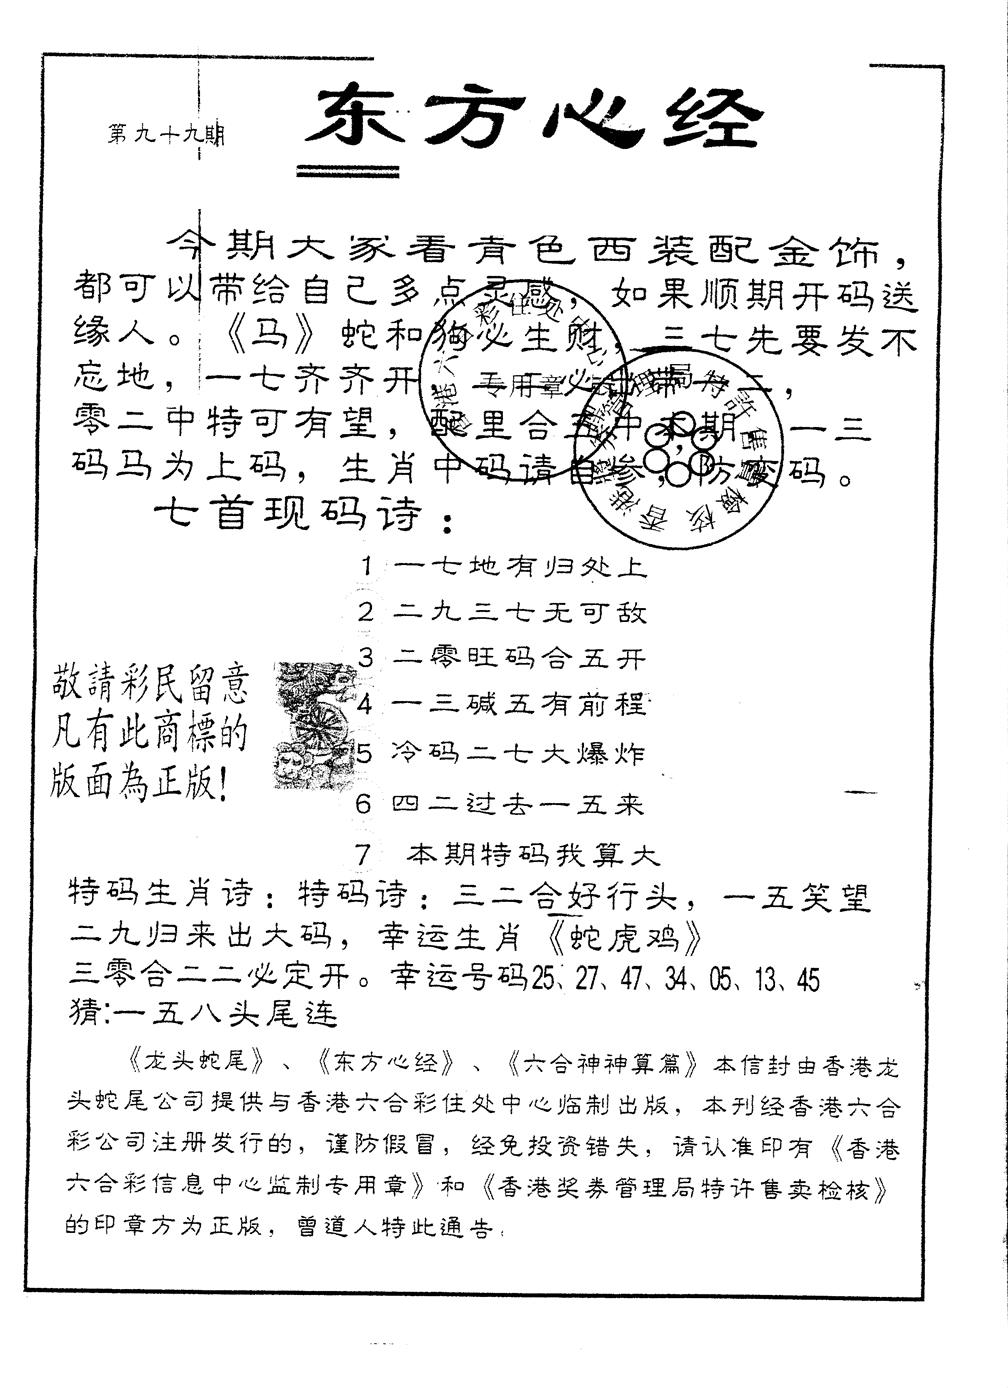 第九十九期
东方心经
今期大家看青色西装配金饰，
都可以带给自己多点灵感，如果顺期开码送
缘人。《马》蛇和狗必生财，三七先要发不
忘地，一七齐齐开，
零二中特可有望，配里合五中本期，一三
码马为上码，生肖中码请自参，防
码。
七首现码诗：
1 一七地有归处上
2 二九三七无可敌
3 二零旺码合五开
4 一三碱五有前程
5 冷码二七大爆炸
6 四二过去一五来
7 本期特码我算大
敬請彩民留意
凡有此商標的
版面為正版！
特码生肖诗：特码诗：三二合好行头，一五笑望
二九归来出大码，幸运生肖《蛇虎鸡》
三零合二二必定开。幸运号码25、27、47、34、05、13、45
猜:一五八头尾连
《龙头蛇尾》、《东方心经》、《六合神神算篇》本信封由香港龙
头蛇尾公司提供与香港六合彩住处中心临制出版，本刊经香港六合
彩公司注册发行的，谨防假冒，经免投资错失，请认准印有《香港
六合彩信息中心监制专用章》和《香港奖券管理局特许售卖检核》
的印章方为正版，曾道人特此通告.
专用章